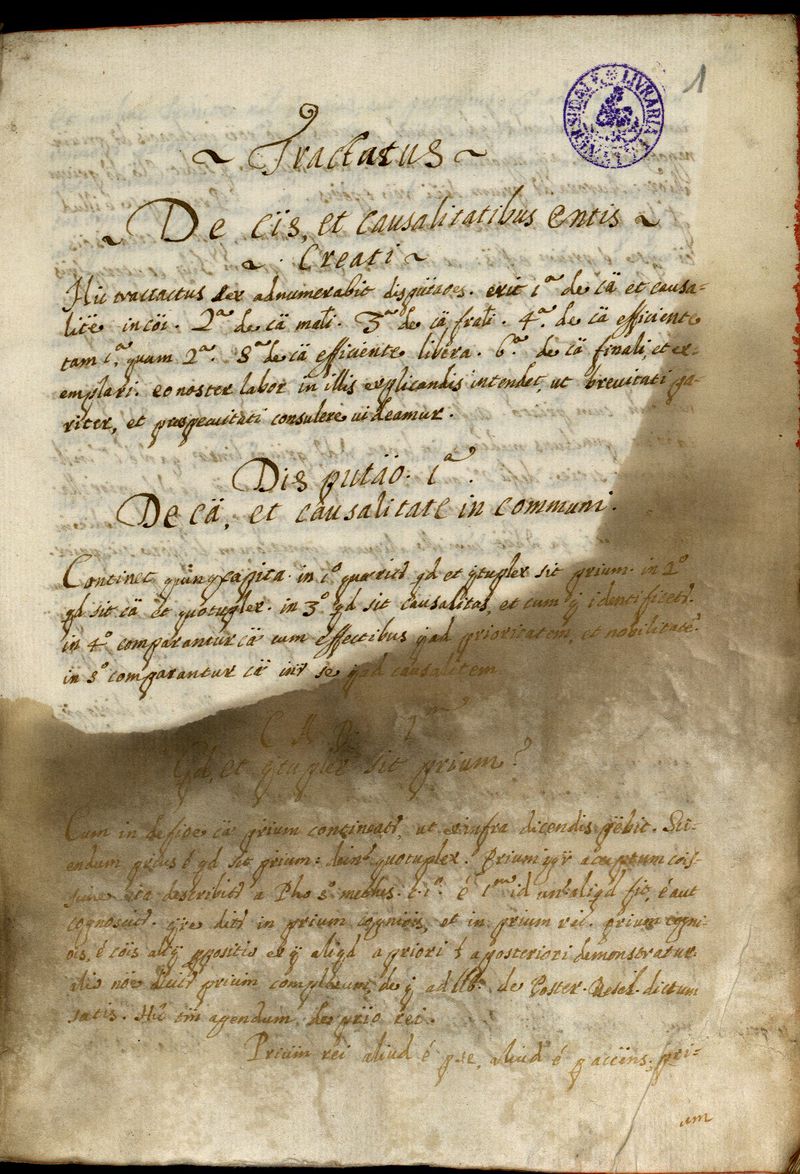 1
LIVRARIA
~ Tractatus ~
~ De cïis, et causalitatibus entis ~
~ Creati ~
Hic tractatus sex adnumerabit disputaões. erit 1.ª de cä et causa=
litäe in cöi. 2.ª de cä mäli. 3.ª de cä fräli. 4.ª de cä efficiente
tam 1.ª quam 2.ª. 5.ª de cä efficiente libera. 6.ª de cä finali, et ex=
emplari. eo noster labor in illis explicandis intendet, ut brevitati pa=
riter, et perspecuitati consulere videamur.
Disputäo. 1.ª
De cä, et causalitate in communi.
Continet quinq capita. in 1.º quærit qd et qtuplex sit prium. in 2.º
qd sit cä et quotuplex. in 3.º qd sit causalitas, et cum q identificet.
in 4.º comparantur cä cum effectibus qad prioritatem, et nobilitatē.
in 5.º comparantur cä int se qad causalitem
CAP. 1.m
Qd, et qtuplex sit prium?
Cum in defioe cä prium contineat, ut ex infra dicendis
endum prius é qd sit prium: dein quotuplex. Prium acceptum cöis=
sime ita describit a Pho 5.º methis. c. 1.º é 1.m id unde aliqd fit, é aut
cognoscit. qre dit in prium cogniöis, et in prium rëi. prium cogni=
öis, é cöis ppositio ex q aliqd a priori l a posteriori demonstratur
alio nöe dicit prium complexum, de q ad lib. de Poster. Resol. dictum
satis. Hic tm agendum de prio rei.
Prium rei aliud é p se, aliud é p accïens; pri=
um